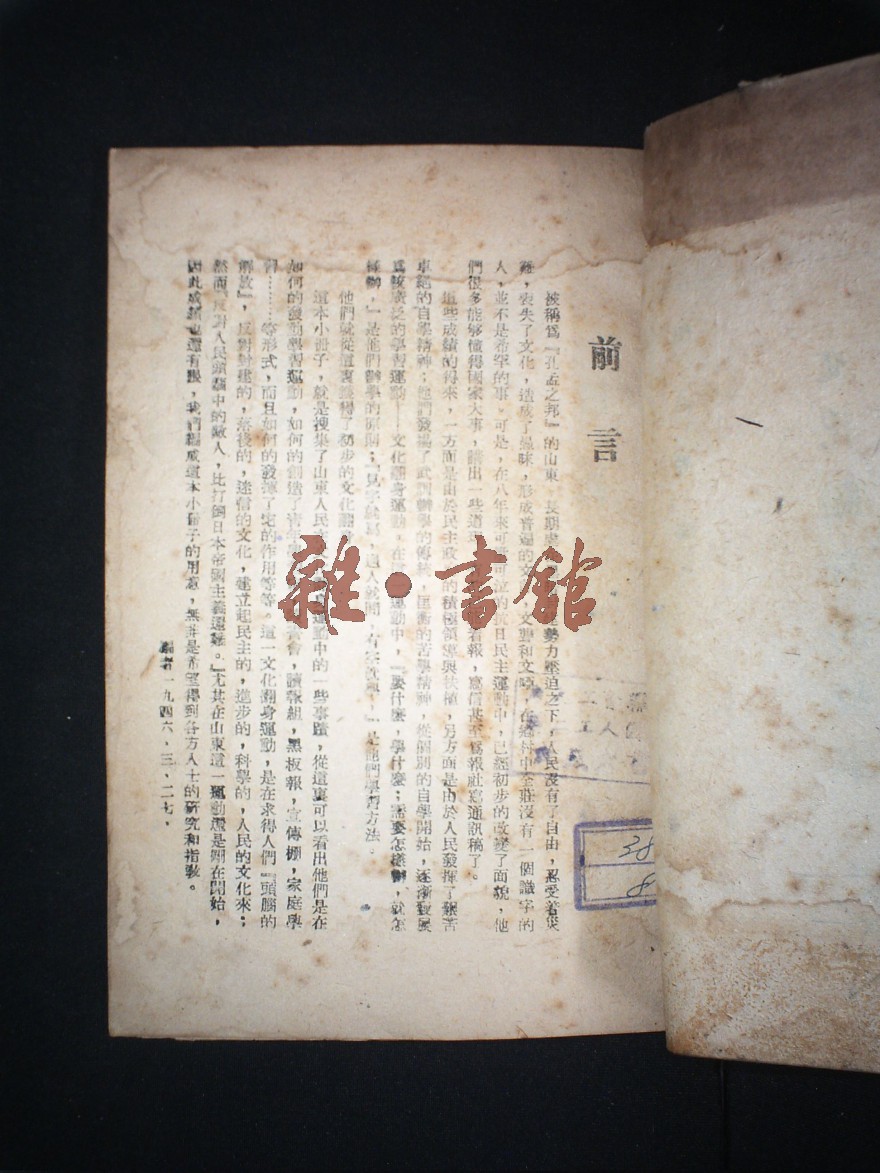 前言
被稱爲『孔孟之邦』的山東，長期處 勢力壓迫之下，人民沒有了自由，忍受着災
難，喪失了文化，造成了愚昧，形成普遍的文盲，文聾和文啞，在鄉村中全莊沒有一個識字的
人，並不是希罕的事，可是，在八年來 抗日民主運動中，已經初步的改變了面貌，他
們很多能够懂得國家大事，講出一些道理 看報，寫信甚至爲報社寫通訊稿了。
這些成績的得來，一方面是由於民主政 的積極領導與扶植，另方面是由於人民發揮了艱苦
卓絕的自學精神；他們發揚了武訓辦學的傳統，匡衡的苦學精神，從個別的自學開始，逐漸發展
爲 廣泛的學習運動——文化翻身運動，在 運動中，『要什麽，學什麽；需要怎樣辦，就怎
樣辦，』是他們辦學的原則；『見字就寫，遇人就問，有 』是他們學習方法。
他們就從這裏獲得了初步的文化翻身
這本小冊子，就是搜集了山東人民 運動中的一些事蹟，從這裏可以看出他們是在
如何的發動學習運動，如何的創造了 會，讀報組，黑板報，宣傳棚，家庭學
習……等形式，而且如何的發揮了它的作用等等。這一文化翻身運動，是在求得人們『頭腦的
解放』，反對封建的，落後的，迷信的文化，建立起民主的，進步的，科學的，人民的文化來；
然而『反對人民頭腦中的敵人，比打倒日本帝國主義還難。』尤其在山東這一運動還是剛在開始，
因此成績也還有限，我們編成這本小冊子的用意，無非是希望得到各方人士的研究和指教。
編者一九四六，三，二七。
雜·書館
38
8